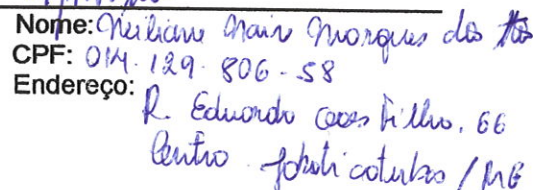 Nome: Neiliane Nair Marques dos
CPF: 014.129.806-58
Endereço:
R. Eduardo Filho, 66
Centro Jaboticatubas / MG